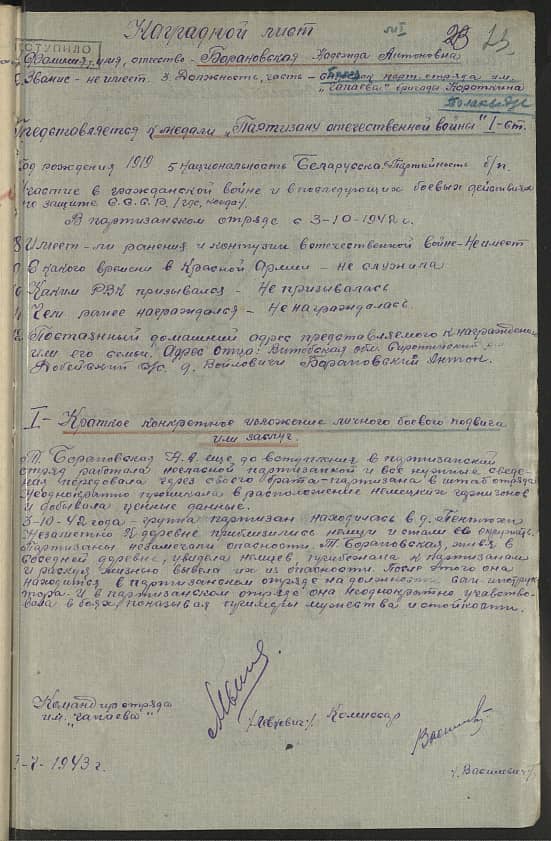 Наградной лист
23
ОСТУПИЛО
Фамилия, имя, отчество - Барановская Надежда Антоновна
Звание - не имеет 3. Должность, часть - парт. отряда им.
"Чапаева" бригады Короткина
Представляется к медали "Партизану отечественной войны" I-ст.
Год рождения 1919 5 Национальность Беларусска Партийность б/п.
Участие в гражданской войне и в последующих боевых действиях
по защите С.С.С.Р. /где, когда/.
В партизанском отряде с 3-10-1942 г.
8 Имеет-ли ранения и контузии в отечественной войне - Не имеет
С какого времени в Красной Армии - не служила
Каким РВК призывался - Не призывалась
Чем ранее награждался - Не награждалась
Постоянный домашний адрес представляемого к награждению
или его семьи. Адрес отца: Витебская обл. Сиротинский
с/с. д. Войловичи Барановский Антон.
I - Краткое конкретное изложение личного боевого подвига
или заслуг.
Т. Барановская Н.А. еще до вступления в партизанский
отряд работала негласной партизанкой и все нужные сведе-
ния передовала через своего брата-партизана в штаб отряда
Неоднократно проникала в расположение немецких гарнизонов
и добывала ценные данные.
3-10-42 года - группа партизан находилась в д.
Незаметно к деревне приблизились немцы и стали ее окружать.
Партизаны не замечали опасности. Т. Барановская, живя в
соседней деревне, увидела немцев, прибежала к партизанам
и рискуя жизнью вывела их из опасности. После этого она
находится в партизанском отряде на должности сан-инструк-
тора. И в партизанском отряде она неоднократно учавство-
вала в боях, показывая примеры мужества и стойкости.
Командир отряда
им. "Чапаева"
Комиссар
/Василевич/
1943 г.